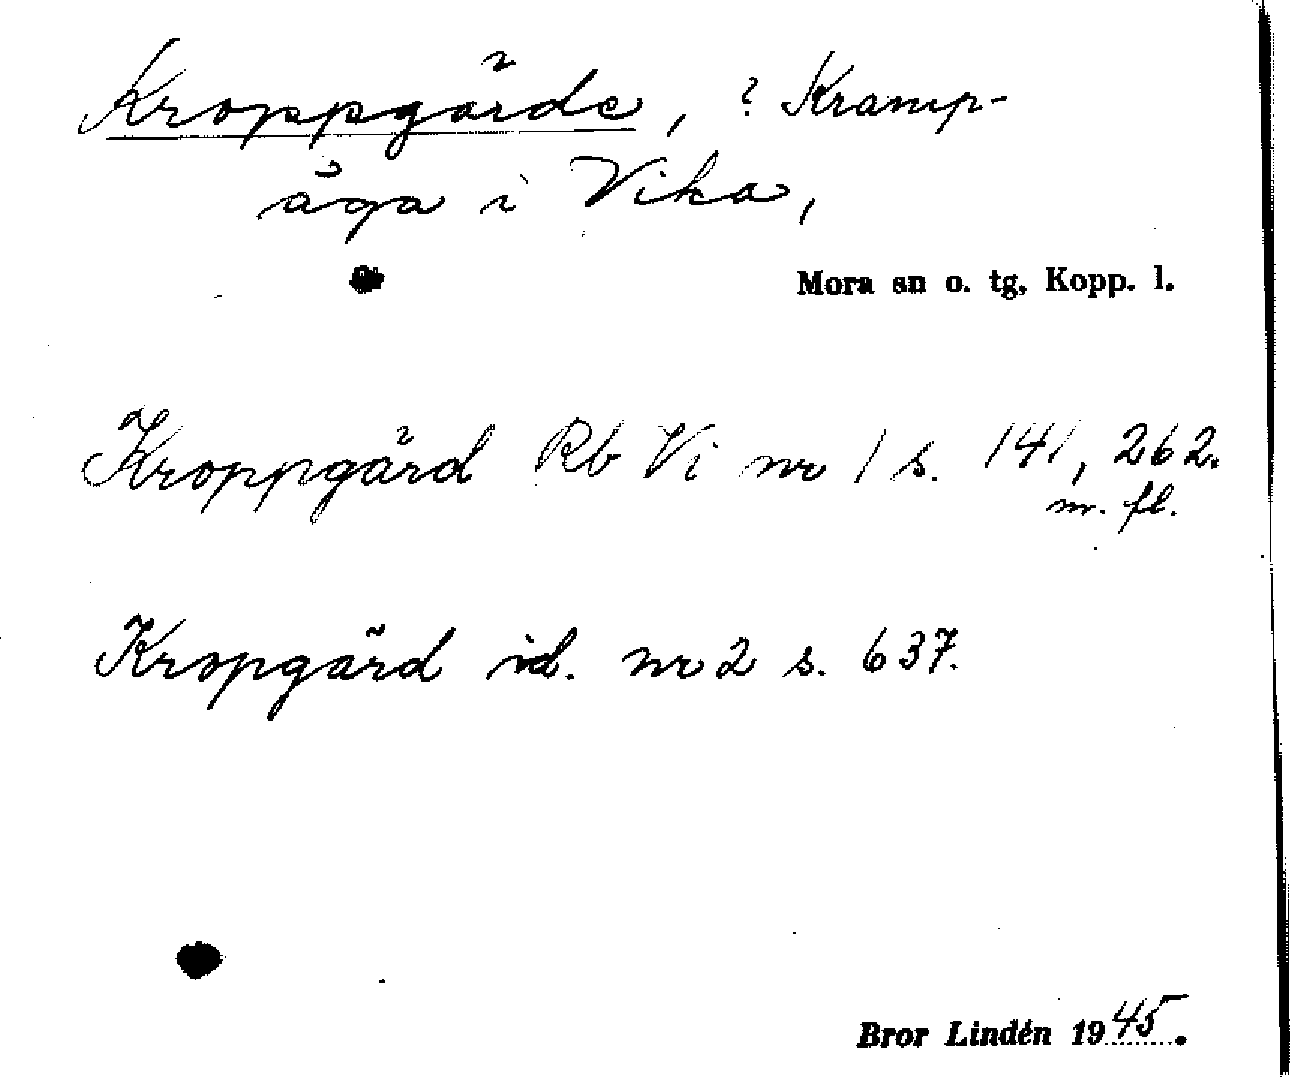 Kroppgärde, ? Kramp-
äga i Vika,
Mora sn o. tg. Kopp. l.
Kroppgärd Rb Vi nr 1 s. 141, 262.
m. fl.
Kropgärd id. nr 2 s. 637.
Bror Lindén 1945.